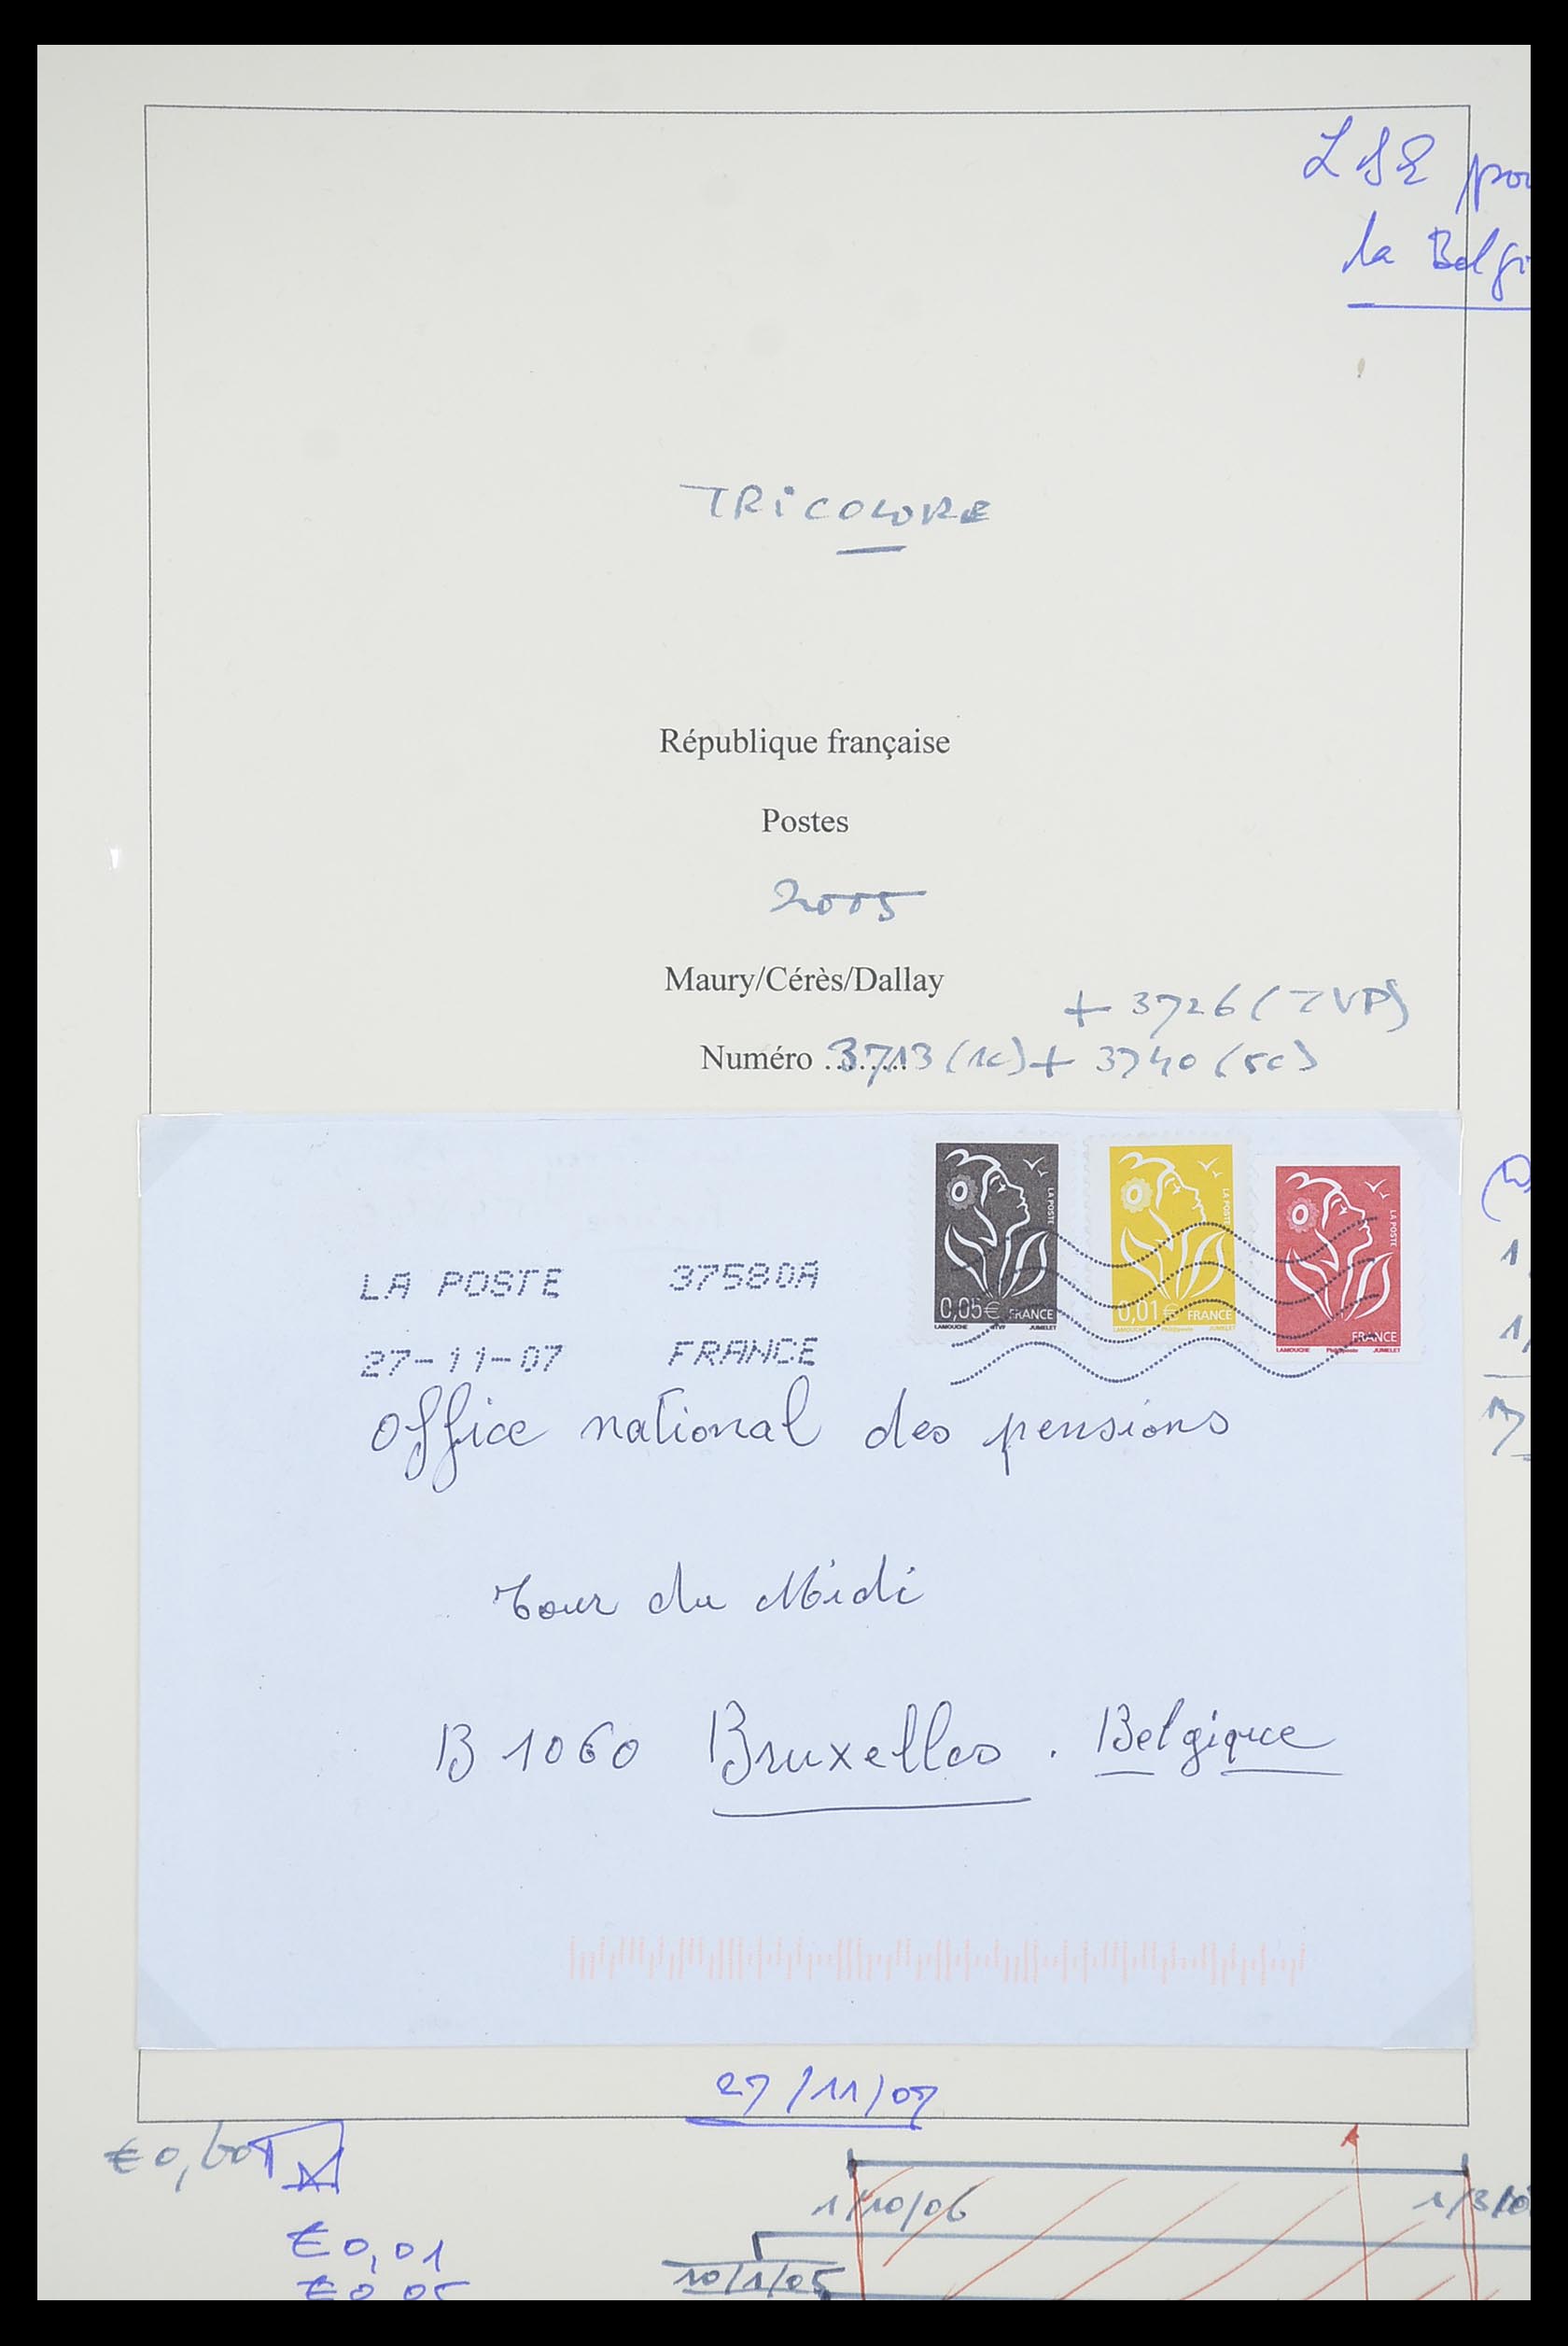 LSE
la
TRICOLORE
République française
Postes
2005
Maury/Cérès/Dallay
+ 3726 (TVP)
Numéro ........ 3713 (1c) + 3740 (5c)
LA POSTE
LA POSTE
LA POSTE
0,05€ FRANCE
0,01€ FRANCE
FRANCE
LAMOUCHE ITVF JUMELET
LAMOUCHE Phil@poste JUMELET
LAMOUCHE Phil@poste JUMELET
LA POSTE 37580A
27-11-07 FRANCE
Office national des pensions
Tour du Midi
B 1060 Bruxelles . Belgique
27/11/07
€0,60
1/10/06
€0,01
10/1/05
€0,05